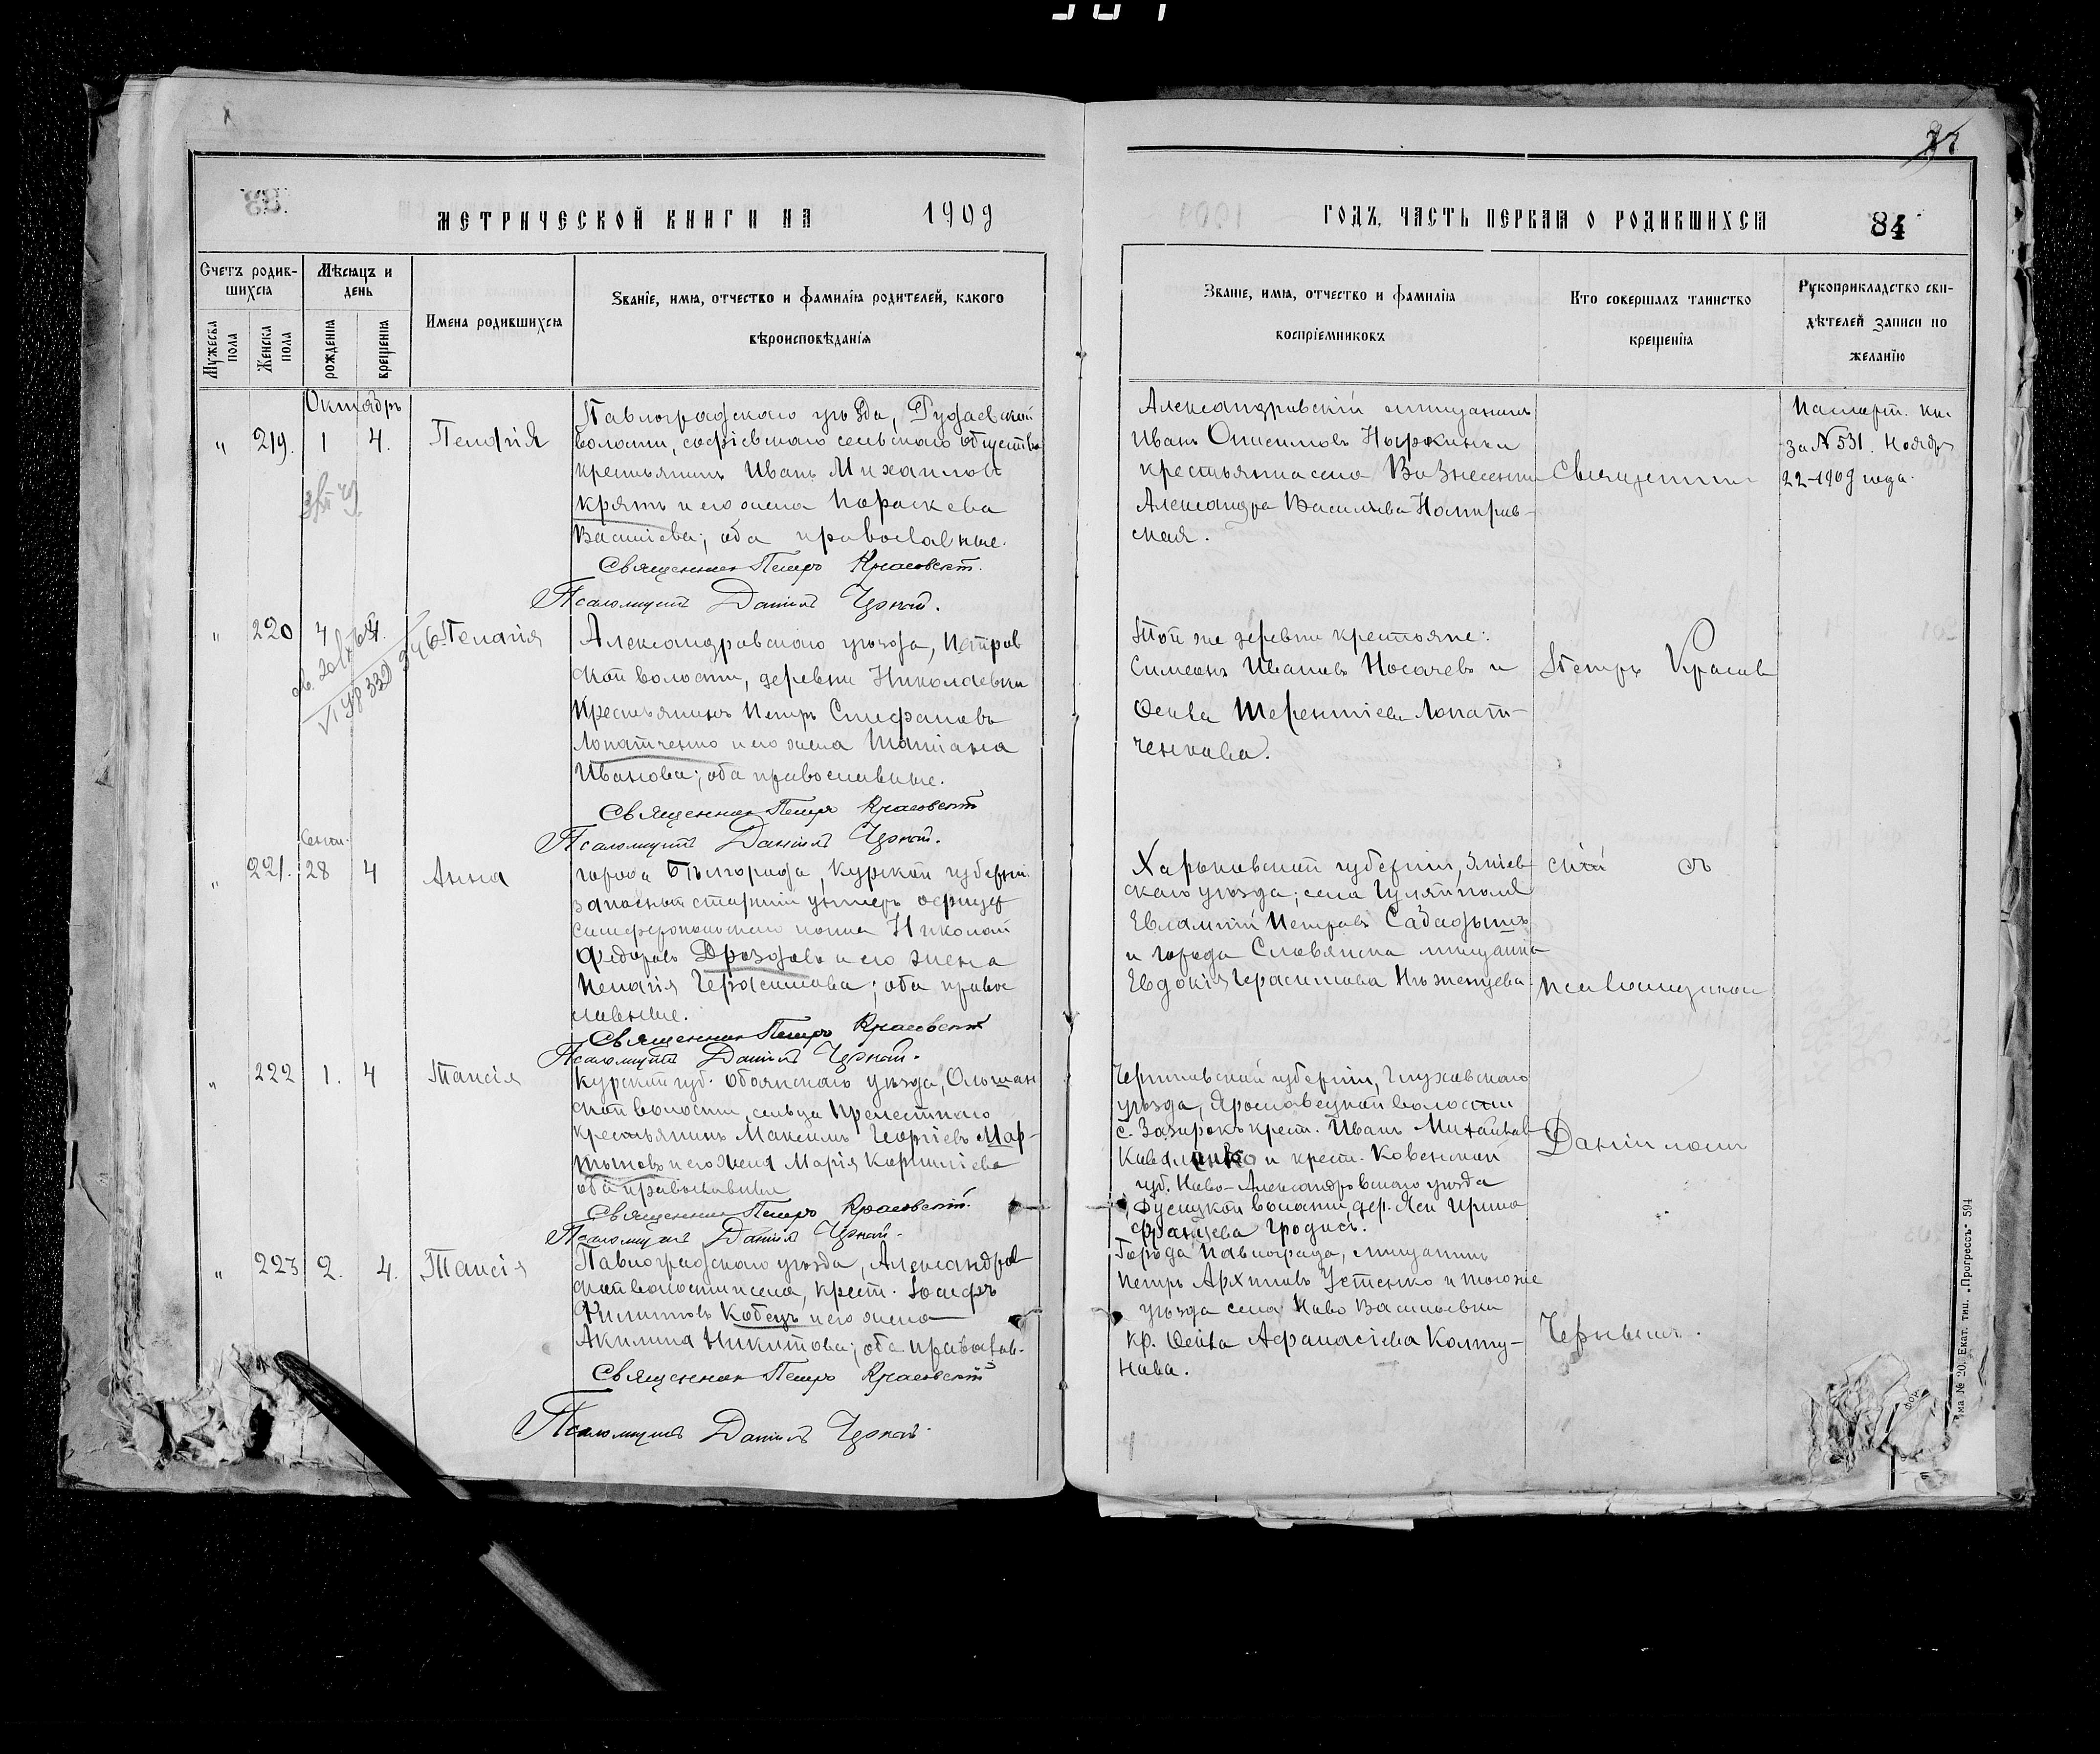 84
МЕТРИЧЕСКОЙ КНИГИ НА 1909
Счетъ родившихся
Мѣсяцъ и день
Имена родившихся
Званіе, имя, отчество и фамилія родителей, какого вѣроисповѣданія
Мужеска пола
Женска пола
рожденія
крещенія
Октябрь
" 219. 1 4.
Павлоградскаго уѣзда,
волости, софіевскаго сельскаго общества
крестьянинъ Иванъ Михаиловъ
Крятъ и его жена Параскева
Василіева; оба православные.
Священникъ Петръ Красовскій.
Псаломщикъ Даніилъ Черный.
" 220 4 4. Пелагія
Александровскаго уѣзда, Петров
ской волости, деревни Николаевки
Крестьянинъ Петръ Стефановъ
Лопатченко и его жена Татіана
Иванова; оба православные.
Священникъ Петръ Красовскій
Псаломщикъ Даніилъ Черный.
Сентя.
" 221. 28 4 Анна
города Бѣлгорода, Курской губерніи
запасный старшій унтеръ офицеръ
Симферопольскаго полка Николай
Федоровъ Дроздовъ и его жена
Пелагія Герасимова; оба право
славные.
Священникъ Петръ Красовскій
Псаломщикъ Даніилъ Черный.
" 222 1. 4 Таисія
Курской губ. Обоянскаго уѣзда, Ольшан
ской волости, сельца Прелестнаго
крестьянинъ Максимъ Георгіевъ Мар-
тыновъ и его жена Марія Корниліева
оба православные
Священникъ Петръ Красовскій.
Псаломщикъ Даніилъ Черный.
" 223 2. 4. Таисія
Павлоградскаго уѣзда, Александров
ской волости и села, крест. Іосифъ
Филиповъ Кобецъ и его жена
Акилина Никитова; оба православ.
Священникъ Петръ Красовскій
Псаломщикъ Даніилъ Черный.
ГОДЪ, ЧАСТЬ ПЕРВАЯ О РОДИВШИХСЯ
Званіе, имя, отчество и фамилія воспріемниковъ
Кто совершалъ таинство крещенія
Рукоприкладство свидѣтелей записи по желанію
Александровскій мѣщанинъ
Иванъ
крестьянка села Вознесенки
Александра Василіева
ская.
Священникъ
Паспорт. кн.
за № 531. Ноябр
22-1909 года.
Той же деревни крестьяне:
Симеонъ Ивановъ Носачевъ и
Фекла Терентіева Лопат-
ченкова.
Петръ Красов
Харьковской губерніи, Зміев-
скаго уѣзда; села Гуляйполя
Евлампій Петровъ
и города Славянска мѣщанка
Евдокія Герасимова Нѣженцева.
скій съ
псаломщикомъ
Черниговской губерніи, Глуховскаго
уѣзда, Ярославецкой волости
с. Зазирокъ крест. Иванъ Михайловъ
Коваленко и крест. Ковенской
губ. Ново-Александровскаго уѣзда
Дусятской волости, дер. Ирина
Францева Гродисъ.
Даніиломъ
Города Павлограда, мѣщанинъ
Петръ Архиповъ Устенко и того же
уѣзда села Ново Васильевки
кр. Фекла Афанасіева Колту-
нова.
Чернымъ.
Екат. тип. „Прогрессъ" 594